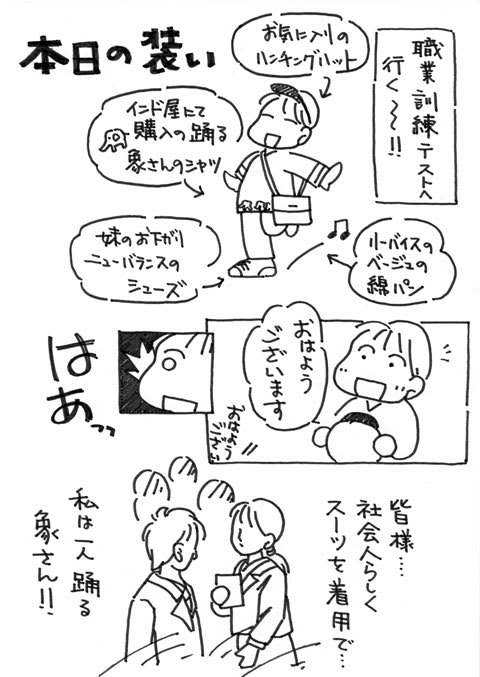 職業訓練テストへ
行く～～!!
本日の装い
お気に入りの
ハンチングハット
インド屋にて
購入の踊る
象さんのシャツ
妹のお下がり
ニューバランスの
シューズ
リーバイスの
ベージュの
綿パン
おはよう
ございます
おはよう
ございます
はあっ
皆様…
社会人らしく
スーツを着用で…
私は一人踊る
象さん!!